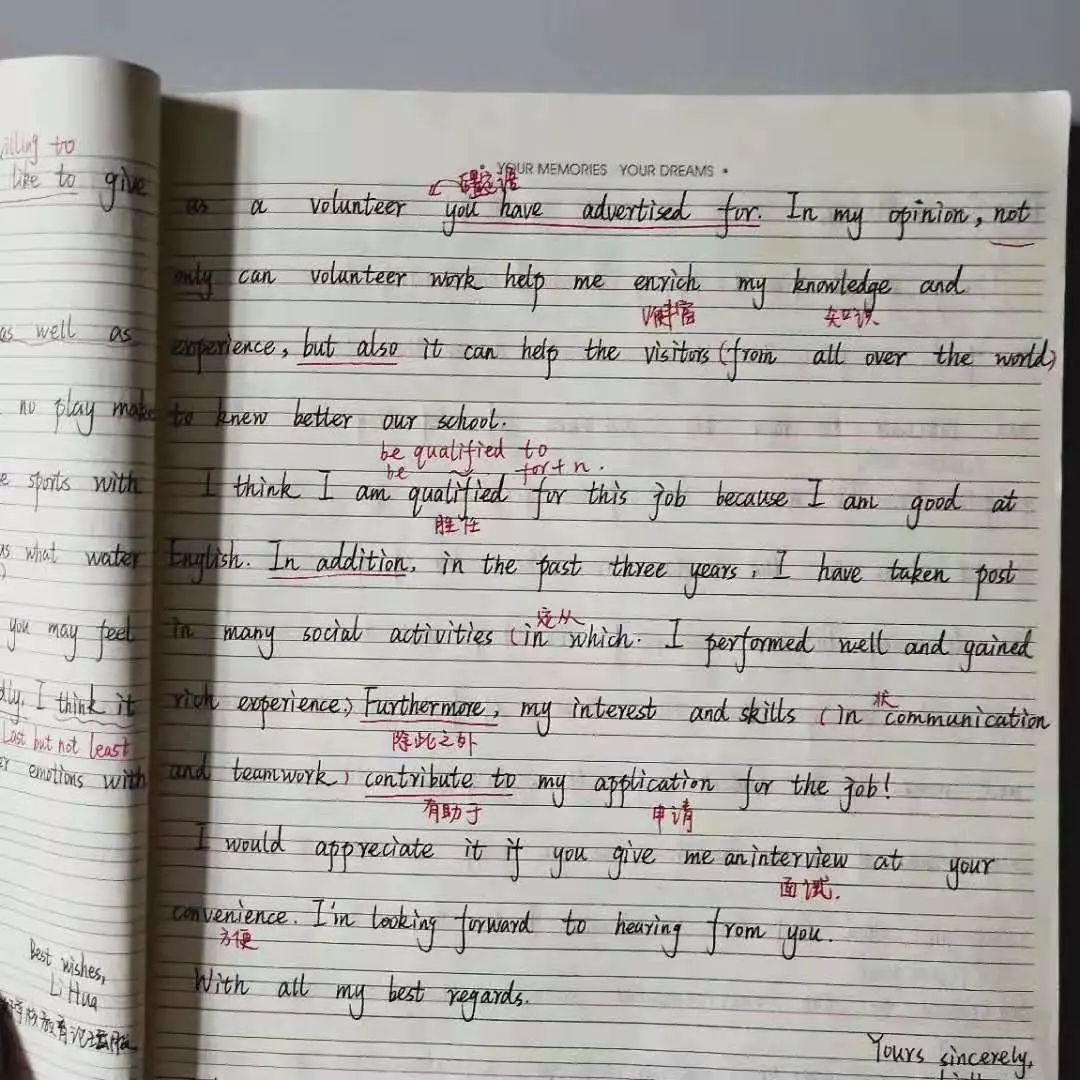 illing to
like to give
as well as
no play make
e sports with
as what water
you may feel
dly, I think it
Last but not least
er emotions with
Best wishes,
Li Hua
• YOUR MEMORIES YOUR DREAMS •
as a volunteer you have advertised for. In my opinion, not
only can volunteer work help me enrich my knowledge and
知识
experience, but also it can help the visitors (from all over the world)
to knew better our school.
be qualified to
be for + n.
I think I am qualified for this job because I am good at
胜任
English. In addition, in the past three years, I have taken post
定从
in many social activities (in which. I performed well and gained
状
rich experience.) Furthermore, my interest and skills (in communication
除此之外
and teamwork) contribute to my application for the job!
有助于 申请
I would appreciate it if you give me an interview at your
面试.
convenience. I'm looking forward to hearing from you.
方便
With all my best regards.
Yours sincerely,